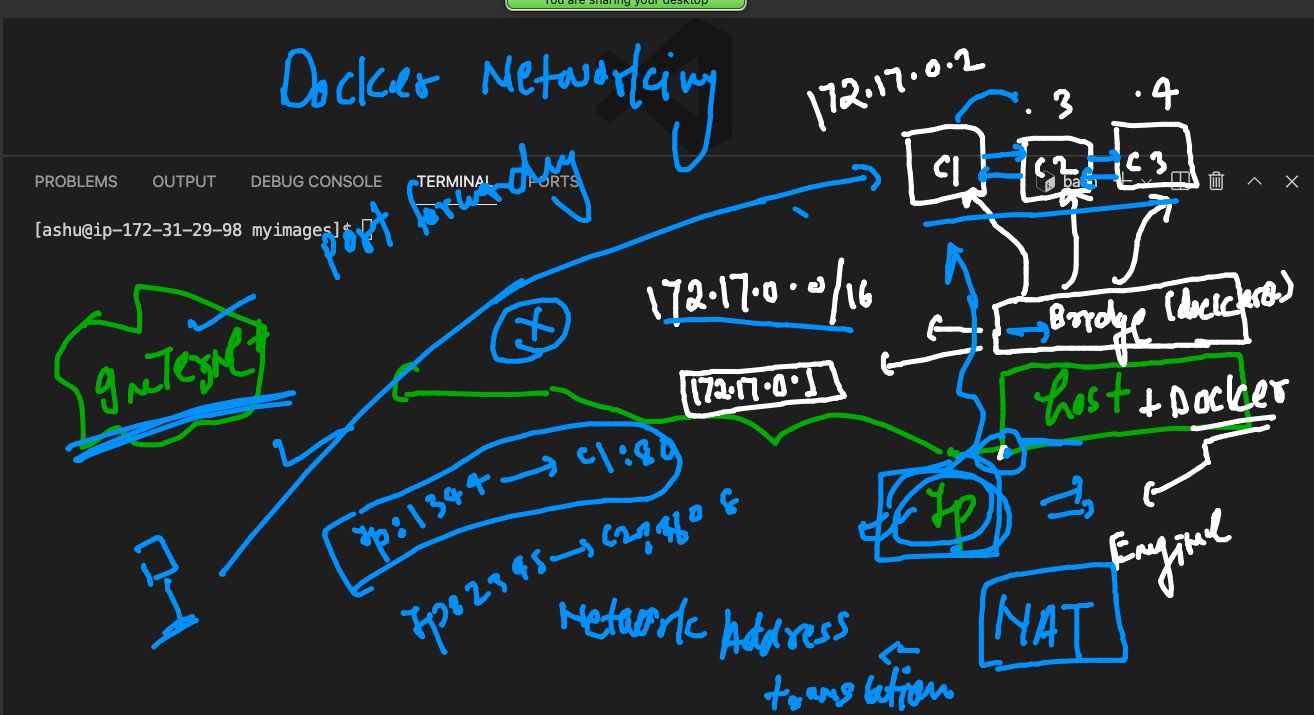 You are sharing your desktop
Docker Networking
172.17.0.2
. 3
. 4
C1
C2
C3
PROBLEMS OUTPUT DEBUG CONSOLE TERMINAL PORTS
bash
[ashu@ip-172-31-29-98 myimages]$
port forwarding
172.17.0.0/16
Bridge (docker0)
172.17.0.1
host + Docker
Engine
Ip
Ip:1344 → C1:80
NAT
Network Address
translation